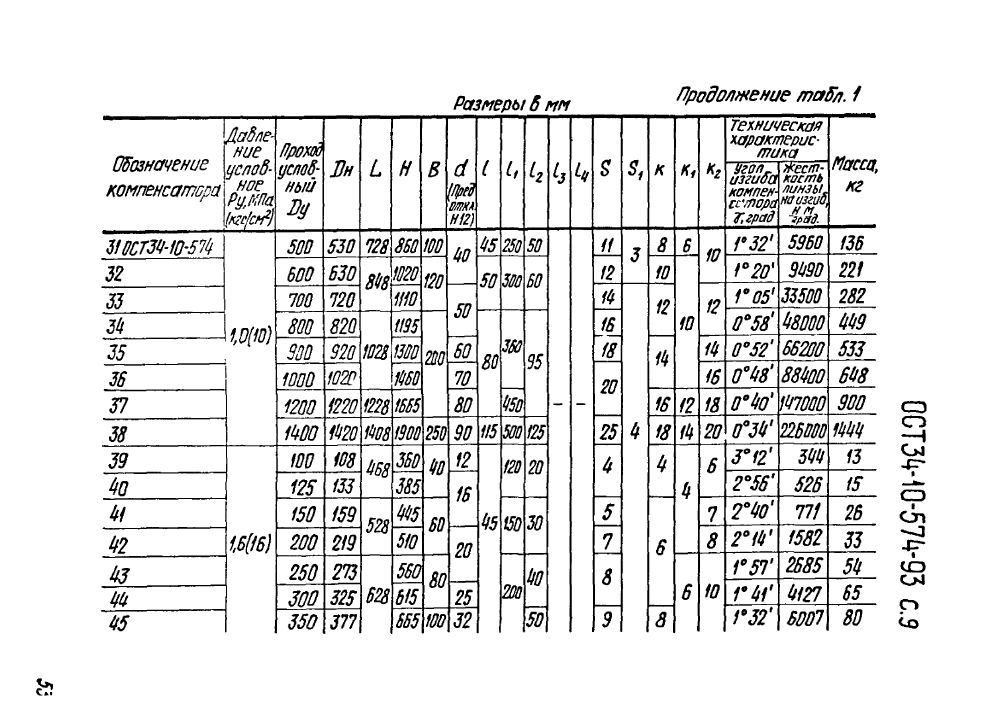 Размеры в мм
Продолжение табл. 1
Обозначение компенсатора | Давление условное Ру, МПа (кгс/см²) | Проход условный Dу | Dн | L | H | B | d (Пред. откл. H12) | l | l₁ | l₂ | l₃ | l₄ | S | S₁ | к | к₁ | к₂ | Техническая характеристика | Масса, кг
Угол изгиба компенсатора γ, град | Жесткость линзы на изгиб, Н·м/град.
31 ОСТ34-10-574 | 1,0(10) | 500 | 530 | 728 | 860 | 100 | 40 | 45 | 250 | 50 | – | – | 11 | 3 | 8 | 6 | 10 | 1°32' | 5960 | 136
32 | 600 | 630 | 848 | 1020 | 120 | 50 | 300 | 60 | 12 | 10 | 10 | 1°20' | 9490 | 221
33 | 700 | 720 | 1110 | 50 | 14 | 4 | 12 | 12 | 1°05' | 33500 | 282
34 | 800 | 820 | 1028 | 1195 | 200 | 80 | 360 | 95 | 16 | 0°58' | 48000 | 449
35 | 900 | 920 | 1300 | 60 | 18 | 14 | 14 | 0°52' | 66200 | 533
36 | 1000 | 1020 | 1460 | 70 | 20 | 16 | 0°48' | 88400 | 648
37 | 1200 | 1220 | 1228 | 1665 | 80 | 450 | 16 | 12 | 18 | 0°40' | 147000 | 900
38 | 1400 | 1420 | 1408 | 1900 | 250 | 90 | 115 | 500 | 125 | 25 | 18 | 14 | 20 | 0°34' | 226000 | 1444
39 | 1,6(16) | 100 | 108 | 468 | 360 | 40 | 12 | 45 | 120 | 20 | 4 | 4 | 4 | 6 | 3°12' | 344 | 13
40 | 125 | 133 | 385 | 16 | 2°56' | 526 | 15
41 | 150 | 159 | 528 | 445 | 60 | 150 | 30 | 5 | 6 | 7 | 2°40' | 771 | 26
42 | 200 | 219 | 510 | 20 | 7 | 8 | 2°14' | 1582 | 33
43 | 250 | 273 | 628 | 560 | 80 | 200 | 40 | 8 | 6 | 10 | 1°57' | 2685 | 54
44 | 300 | 325 | 615 | 25 | 1°41' | 4127 | 65
45 | 350 | 377 | 665 | 100 | 32 | 50 | 9 | 8 | 1°32' | 6007 | 80
ОСТ34-10-574-93 С.9